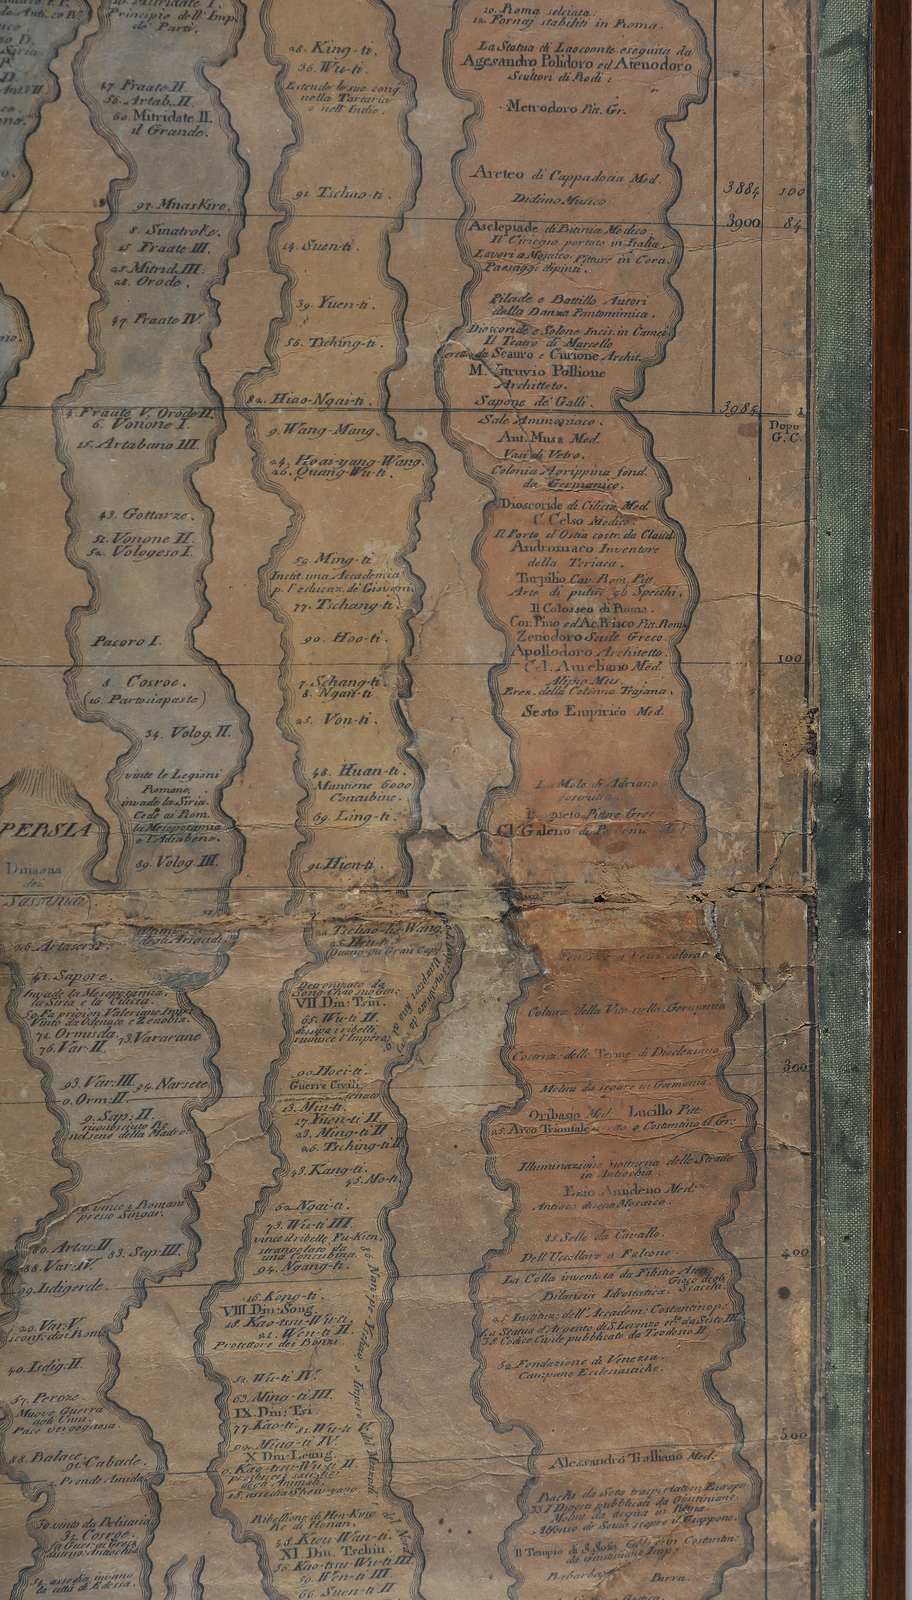 Principio dell' Imp.
de' Parti.
47. Fraate II.
56. Artab. II.
60. Mitridate II.
il Grande.
97. Mnaskire.
8. Sinatroke.
15. Fraate III.
25. Mitrid. III.
28. Orode.
47 Fraate IV.
4. Fraate V. Orode II.
6. Vonone I.
15. Artabano III.
43. Gottarze.
51. Vonone II.
52. Vologeso I.
Pacoro I.
8 Cosroe.
(16. Partosiapaste)
34. Volog. II.
vinte le Legioni
Romane,
invade la Siria.
Cede ai Rom.
la Mesopotamia
e l'Adiabene.
89. Volog. III.
PERSIA
Dinastia
dei
Sassanidi
26. Artaserse
degli Arsacidi
41. Sapore.
Invade la Mesopotamia,
la Siria e la Cilicia.
50. Fa prigion Valeriano Imp.
Vinto da Odenato e Zenobia.
72. Ormisda. 73. Vararane
76. Var. II.
93. Var. III. 94. Narsete
0. Orm. II.
9. Sap. II.
riconosciuto Re
nel seno della Madre.
vince i Romani
presso Singar.
80. Artas. II. 83. Sap. III.
88. Var. IV.
99. Isdigerde.
20. Var. V.
40. Isdig. II.
57. Peroze.
Muove Guerra
agli Unni.
Pace vergognosa.
88. Balace.
91. Cabade.
2. Prende Amida
30. vinto da Belisario
31. Cosroe.
fa Guer. ai Greci
distrug. Antiochia.
54. assedia invano
la città di Edessa.
28. King-ti.
36. Wu-ti.
Estende le sue conq.
nella Tartaria
e nell' Indie.
91. Tschao-ti.
14. Suen-ti.
39. Yuen-ti.
56. Tsching-ti.
82. Hiao-Ngai-ti.
9. Wang-Mang.
24. Hoai-yang-Wang.
26. Quang-Wu-ti.
59. Ming-ti
Instit. una Accademia
p. l'educaz. de' Giovani.
77. Tschang-ti.
90. Hoo-ti.
7. Schang-ti.
8. Ngan-ti
25. Von-ti.
48. Huan-ti.
Mantiene 6000
Concubine.
69. Ling-ti.
91. Hien-ti.
Tschao-lie-Wang.
25. Heu-ti
Detronizato da
VII Din: Tsin.
65. Wu-ti II.
dissipa i ribelli,
riunisce l'Impero.
90. Hoei-ti.
Guerre Civili
13. Min-ti.
17. Yuen-ti II.
23. Ming-ti II.
26. Tsching-ti II
43. Kang-ti.
45. Mo-ti.
62. Ngai-ti.
73. Wu-ti III.
vince il ribelle Fu-Kien,
strangolato da
una Concubina.
94. Ngang-ti.
86. Nan-pe Tschao o Imperi del Mezzodì e del Nord
16. Kong-ti.
VIII Din: Song.
18. Kao-tsu-Wu-ti.
21. Wen-ti II.
Protettore dei Bonzi.
52. Wu-ti IV.
63. Ming-ti III.
IX. Din: Tsi
77. Kao-ti. 81. Wu-ti V.
92. Ming-ti IV.
X Din: Leang.
0. Kao-tsu-Wu-ti II.
15. assedia Shew-yang.
Ribellione di Hen-King
Re di Honan.
48. Kieu-Wan-ti.
XI. Din. Tschin.
56. Kao-tsu-Wu-ti III.
59. Wen-ti III.
66. Suen-ti II
10. Roma selciata.
12. Fornaj stabiliti in Roma.
La Statua di Laocoonte eseguita da
Agesandro Polidoro ed Atenodoro
Scultori di Rodi;
Metrodoro Pitt. Gr.
Areteo di Cappadocia Med.
Didimo Musico
Asclepiade di Bitinia Medico.
Il Ciriegio portato in Italia.
Lavori a Mosaico. Pitture in Cera.
Paesaggi dipinti.
Pilade e Batillo Autori
della Danza Pantomimica.
Dioscoride e Solone Incis. in Camei.
Il Teatro di Marcello
eretto da Scauro e Curione Archit.
M. Vitruvio Pollione
Architteto.
Sapone de' Galli.
Sale Ammoniaco.
Ant. Musa Med.
Vasi di Vetro.
Colonia Agrippina fond.
da Germanico.
Dioscoride di Cilicia Med.
C. Celso Medico.
Il Porto d'Ostia costr. da Claud.
Andromaco Inventore
della Teriaca.
Turpilio Cav. Rom. Pitt.
Arte di pulire gli Specchi.
Il Colosseo di Roma.
Cor. Pino ed Ac. Prisco Pitt. Rom.
Zenodoro Scult. Greco.
Apollodoro Architetto.
Cel. Aureliano Med.
Alipio Mus.
Erez. della Colonna Trajana.
Sesto Empirico Med.
La Mole di Adriano
Pittore Greco
Cl. Galeno di Pergamo Med.
Coltura della Vite nella Germania
Costruz. delle Terme di Diocleziano.
Molini da segare in Germania
Oribasio Med. Lucillo Pitt.
25. Arco Trionfale Costantino il Gr:
Illuminazione notturna delle Strade
in Antiochia.
Ezio Amideno Med.
85. Selle da Cavallo.
Dell'Uccellare a Falcone.
La Colla inventata da Filistio Aten.
Gioco degli
Scacchi.
Bilancia Idrostatica.
25. Instituz. dell'Accadem: Costantinop:
La Statua d'Argento di S. Lorenzo er. da Sisto III.
38. Codice Civile pubblicato da Teodosio II.
52. Fondazione di Venezia.
Campane Ecclesiastiche.
Alessandro Tralliano Med.
Bachi da Seta trasportati in Europa
33. I Digesti pubblicati da Giustiniano
Molini da acqua in Roma
Alfonso de Sousa scopre il Giappone.
Il Tempio di S. Sofia edific. in Costantin.
da Giustiniano Imp.
Birra.
3884 100
3900 84
3984 1
Dopo
G. C.
100
300
400
500